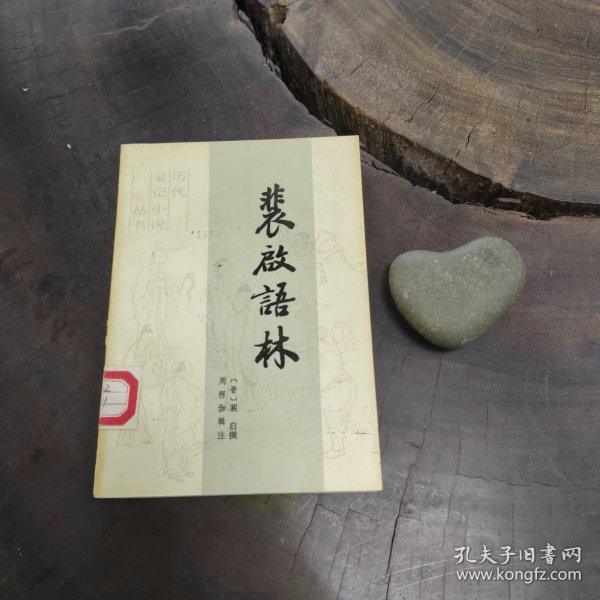 历代
笔记小说
丛书
裴啟語林
〔晋〕裴启撰
周楞伽辑注
2
1
孔夫子旧书网
www.kongfz.com